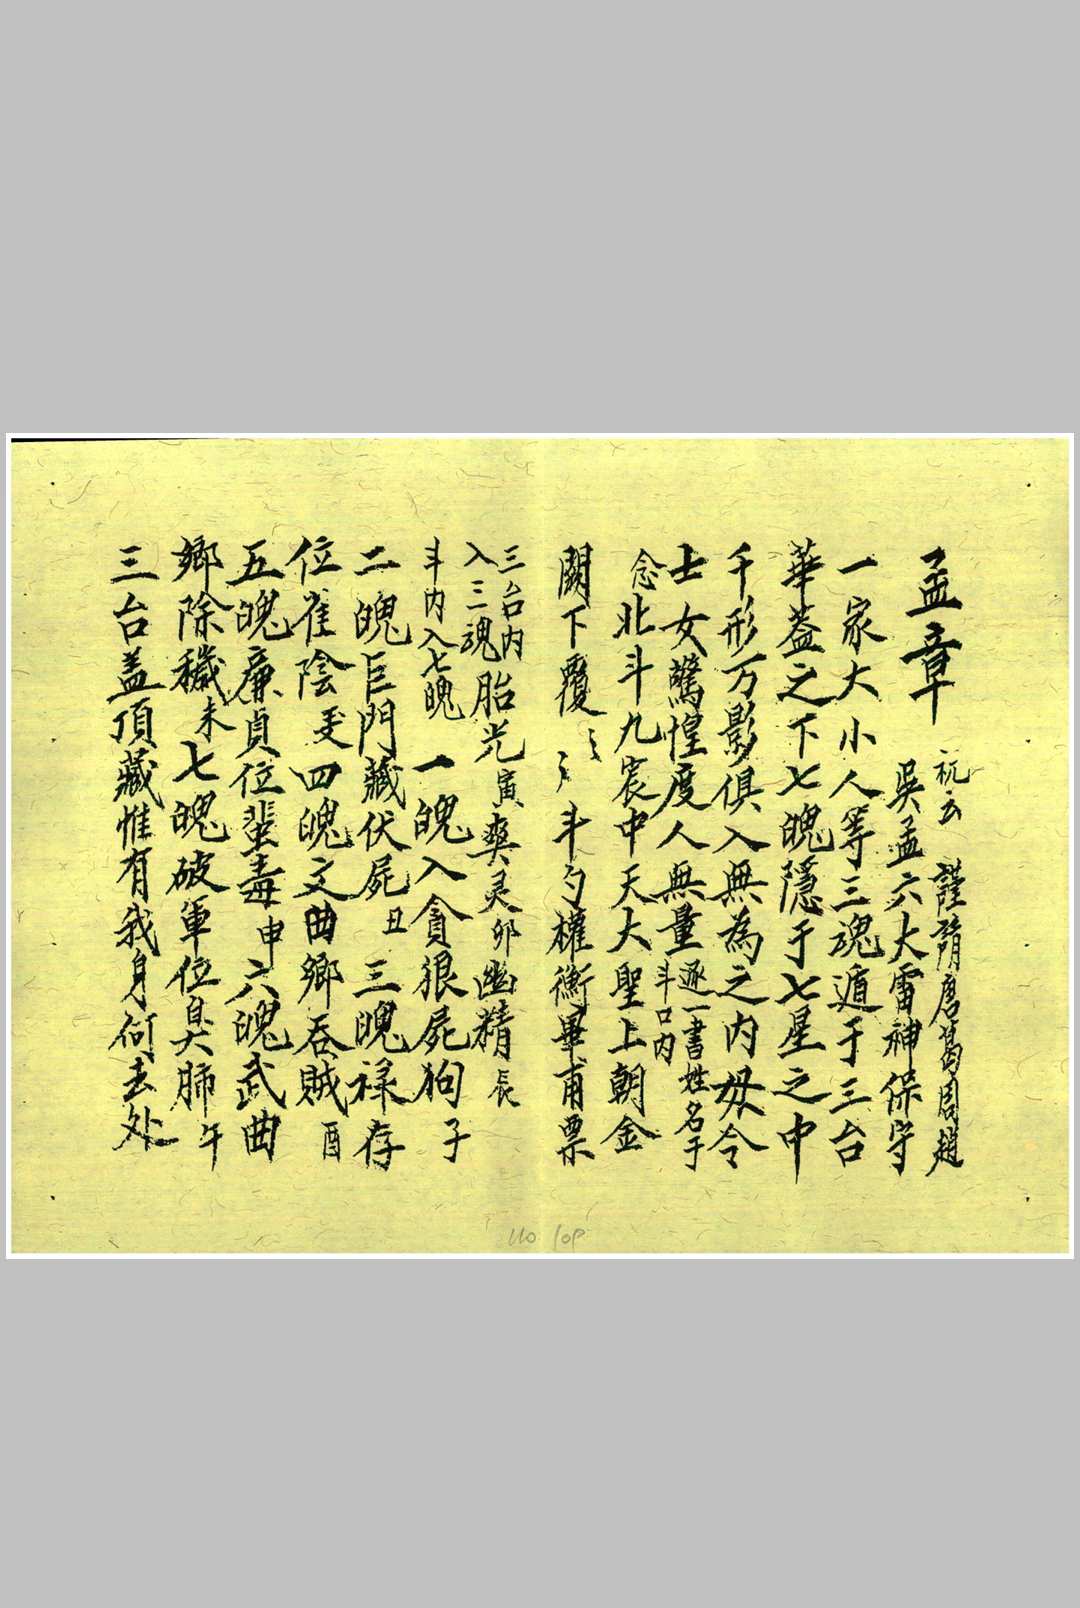 孟章 祝云 謹請唐葛周趙
吳孟六大雷神保守
一家大小人等三魂遁于三台
華蓋之下七魄隱于七星之中
千形万影俱入無為之内毋令
士女驚惶度人無量 逐一書姓名于斗口内
念北斗九宸中天大聖上朝金
闕下覆〻〻斗勺權衡畢甫票
三台内入三魂 胎光寅爽灵卯幽精辰
斗内入七魄 一魄入貪狼屍狗子
二魄巨門藏伏屍丑三魄祿存
位雀陰 四魄文曲鄉吞賊酉
五魄廉貞位蜚毒申六魄武曲
鄉除穢未七魄破軍位臭肺午
三台盖頂藏惟有我身何去处
110 109